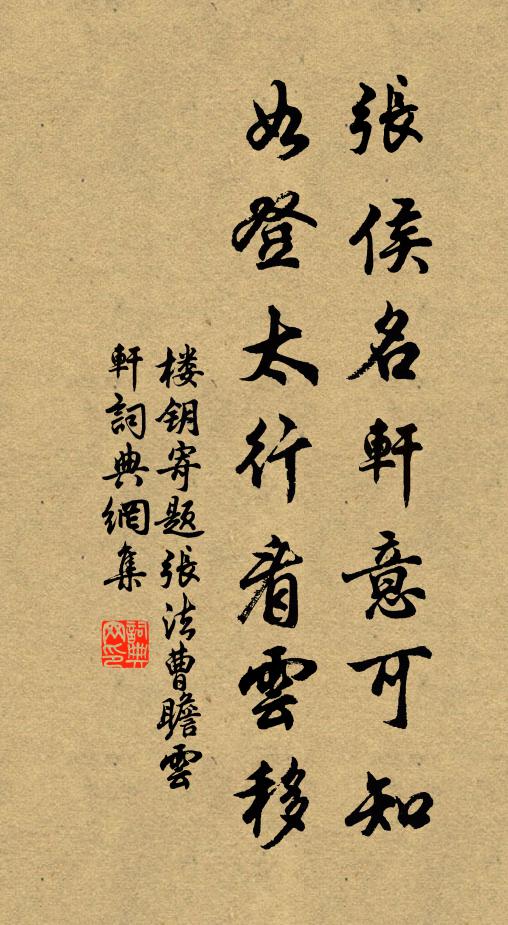 張侯名軒意可知
如登太行看雲移
楼钥寄題張法曹瞻雲
軒詞典網集
詞典
网印